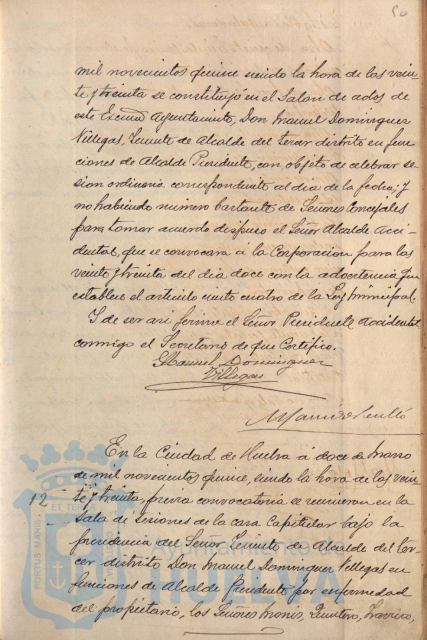 50
mil novecientos quince siendo la hora de las vein-
te y treinta se constituyó en el Salon de actos de
este Excmo Ayuntamiento, Don Manuel Dominguez
Villegas, Teniente de Alcalde del tercer distrito en fun
ciones de Alcalde Presidente, con objeto de celebrar se
sion ordinaria correspondiente al dia de la fecha; y
no habiendo numero bastante de Señores Concejales
para tomar acuerdo dispuso el Señor Alcalde Acci-
dental, que se convocara á la Corporacion para las
veinte y treinta del dia doce con la advertencia que
establece el articulo ciento cuatro de la Ley Municipal.
Y de ser asi firma el Señor Presidente accidental
conmigo el Secretario de que Certifico.
Manuel Dominguez
Villegas
En la Ciudad de Huelva á doce de Marzo
de mil novecientos quince, siendo la hora de las vein-
12 te y treinta, previa convocatoria se reunieron en la
Sala de Sesiones de la casa Capitular bajo la
presidencia del Señor Teniente de Alcalde del ter
cer distrito Don Manuel Dominguez Villegas en
funciones de Alcalde Presidente por enfermedad
del propietario, los Señores Quintero,
PORTUS MARIS ET TERRAE
Ayuntamiento de
HUELVA